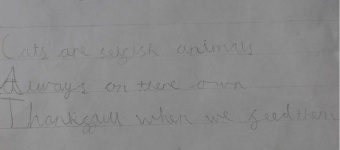 Cats are selgish animals
Always on there own
Thankgull when we geed them